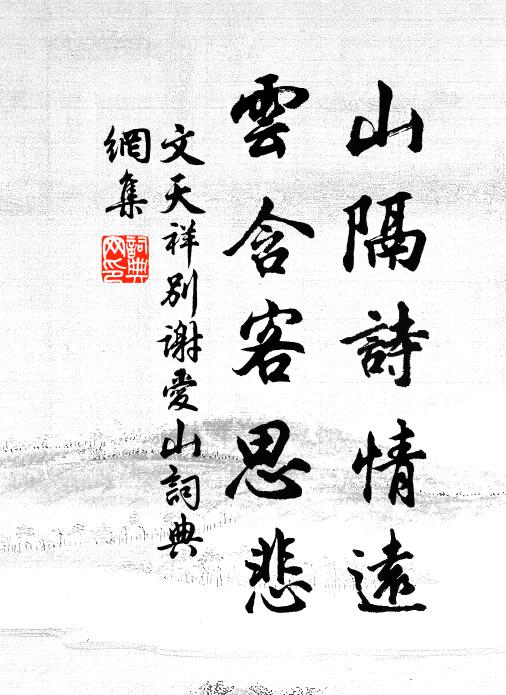 山隔詩情遠
雲含客思悲
文天祥別謝愛山詞典
網集
詞典
网印